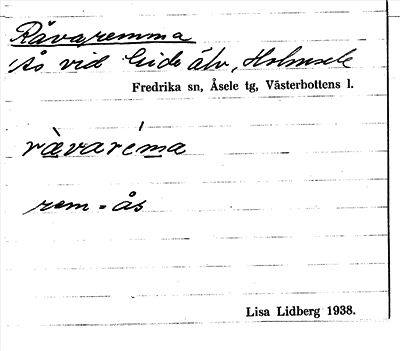 Råvaremma
Ås vid Gide älv, Holmsele
Fredrika sn, Åsele tg, Västerbottens l.
ràvaréma
rem = ås
Lisa Lidberg 1938.